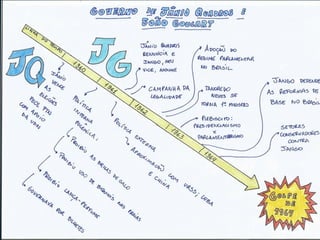 GOVERNO DE JÂNIO QUADROS E
JOÃO GOULART
LINHA DO TEMPO
1960
1961
1962
1963
1964
JQ
JG
JÂNIO
VENCE
AS
ELEIÇÕES
PELO PTN
COM APOIO
DA UDN
JÂNIO QUADROS
RENUNCIA E
JANGO, SEU
VICE, ASSUME
CAMPANHA DA
LEGALIDADE
ADOÇÃO DO
REGIME PARLAMENTAR
NO BRASIL
TANCREDO
NEVES SE
TORNA 1º MINISTRO
PLEBISCITO:
PRESIDENCIALISMO
X
PARLAMENTARISMO
JANGO DEFENDE
AS REFORMAS DE
BASE NO BRASIL
SETORES
CONSERVADORES
CONTRA
JANGO
GOLPE
DE
1964
POLÍTICA
INTERNA
POLÊMICA:
PROIBIU AS BRIGAS DE GALO
PROIBIU USO DE BIQUÍNIS NAS PRAIAS
PROIBIU LANÇA-PERFUME
GOVERNAVA POR BILHETES
POLÍTICA EXTERNA
APROXIMAÇÃO COM URSS, CUBA
E CHINA